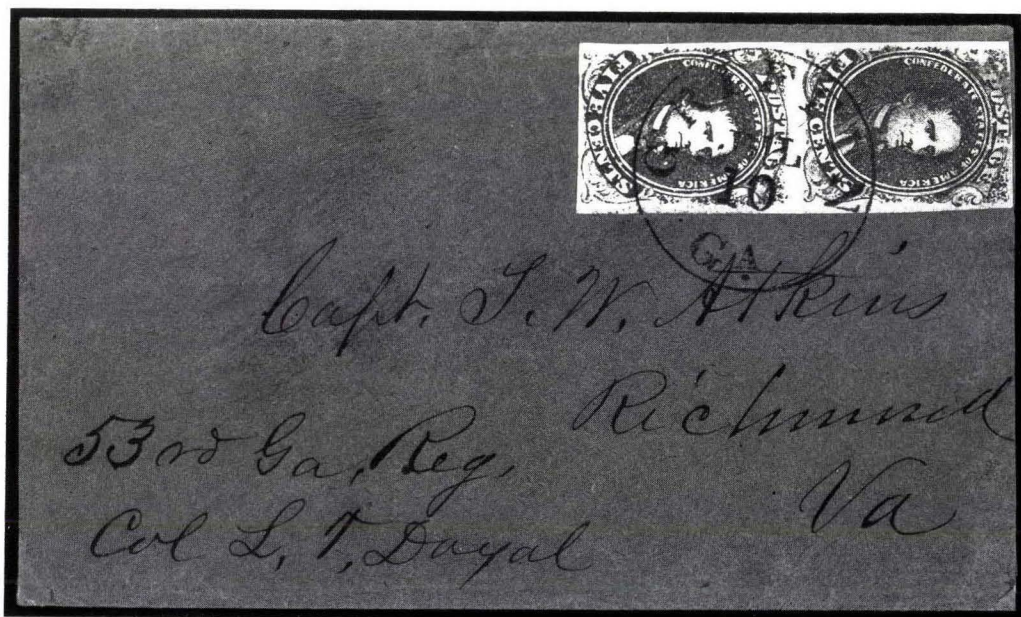 FIVE CENTS
POSTAGE
CONFEDERATE STATES OF AMERICA
FIVE CENTS
POSTAGE
CONFEDERATE STATES OF AMERICA
10
GA.
Capt. S. W. Atkins
Richmond
Va
53rd Ga, Reg,
Col L, T, Doyal